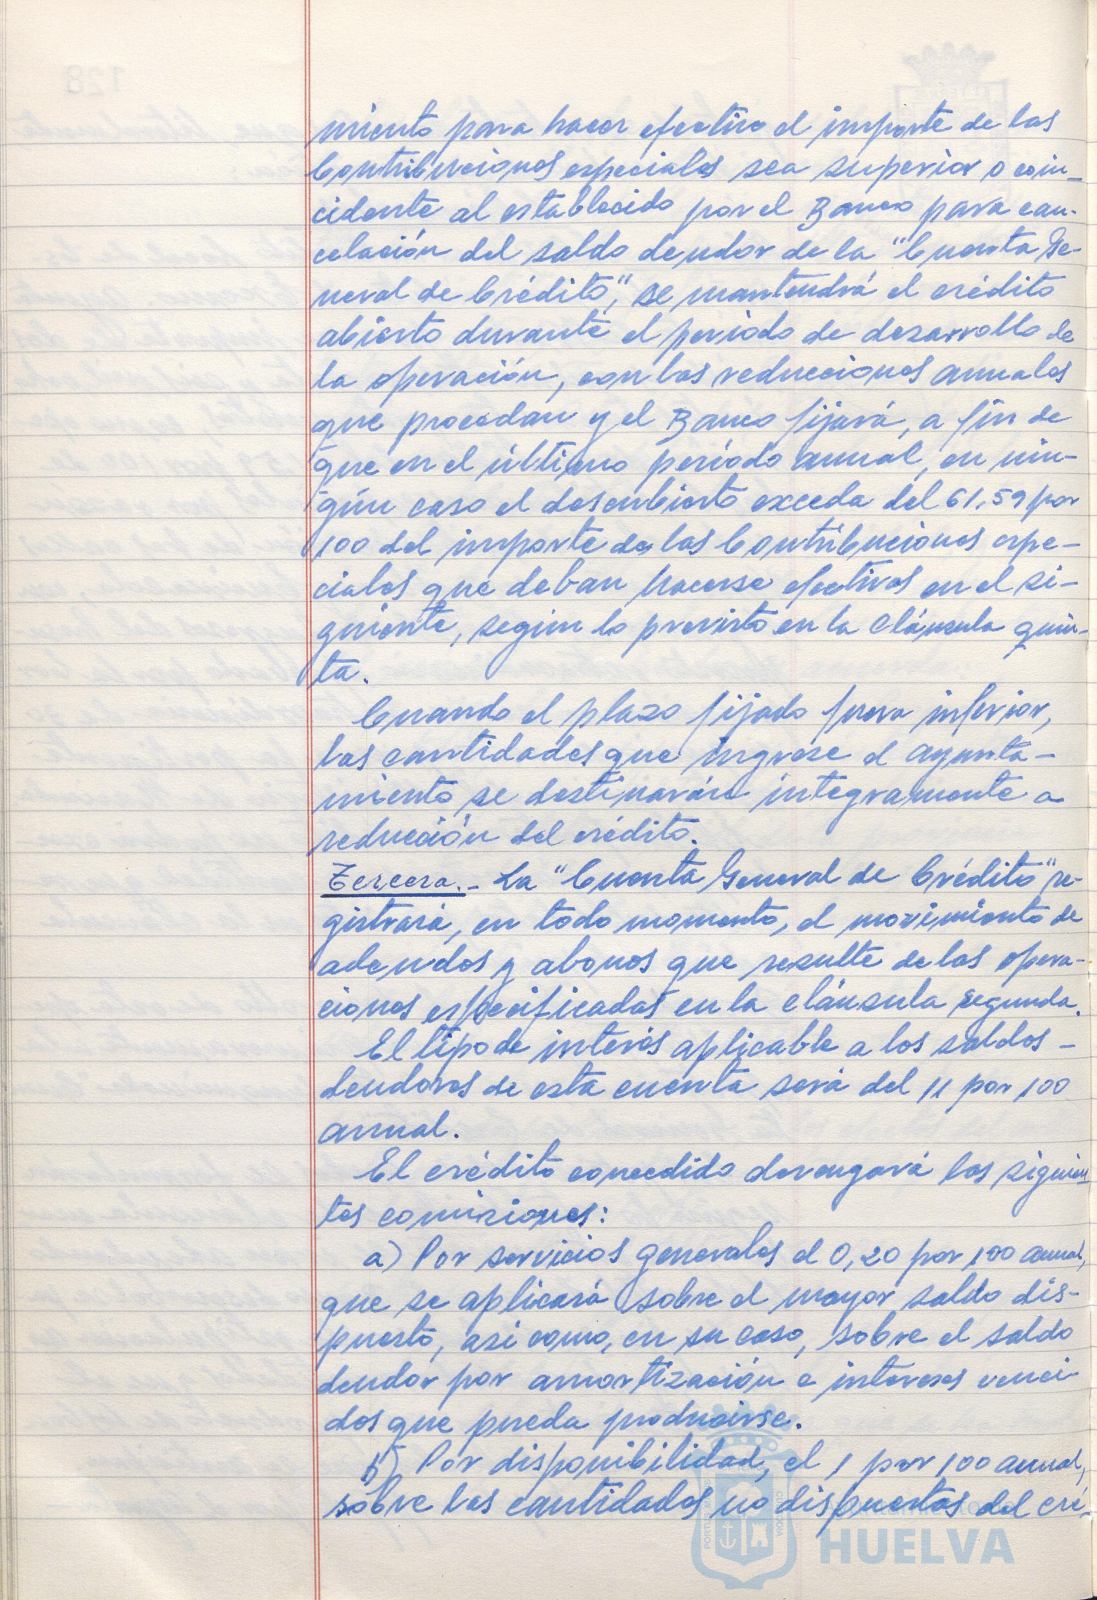 miento para hacer efectivo el importe de las
Contribuciones especiales sea superior o coin-
cidente al establecido por el Banco para can-
celación del saldo deudor de la "Cuenta Ge-
neral de Crédito", se mantendrá el crédito
abierto durante el periodo de desarrollo de
la operación, con las reducciones anuales
que procedan y el Banco fijará, a fin de
que en el último período anual, en nin-
gún caso el descubierto exceda del 61,59 por
100 del importe de las Contribuciones espe-
ciales que deban hacerse efectivas en el si-
guiente, según lo previsto en la cláusula quin-
ta.
Cuando el plazo fijado fuera inferior,
las cantidades que ingrese el ayunta-
miento se destinarán integramente a
reducción del crédito.
Tercera.- La "Cuenta General de Crédito" re-
gistrará, en todo momento, el movimiento de
adeudos y abonos que resulte de las opera-
ciones especificadas en la cláusula segunda.
El tipo de interés aplicable a los saldos -
deudores de esta cuenta será del 11 por 100
anual.
El crédito concedido devengará las siguien
tes comisiones:
a) Por servicios generales el 0,20 por 100 anual,
que se aplicará sobre el mayor saldo dis-
puesto, asi como, en su caso, sobre el saldo
deudor por amortización e intereses venci
dos que pueda producirse.
b) Por disponibilidad, el 1 por 100 anual,
sobre las cantidades no dispuestas del cré-
HUELVA
128